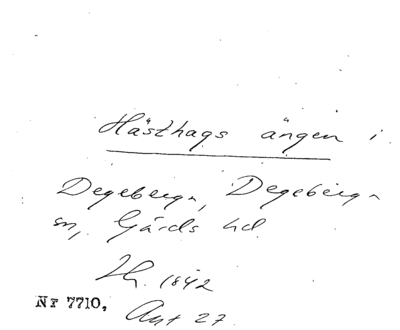 Hästhags ängen i
Degeberga, Degeberga
sn, Gärds hd
1842
Nr 7710,
Akt 27